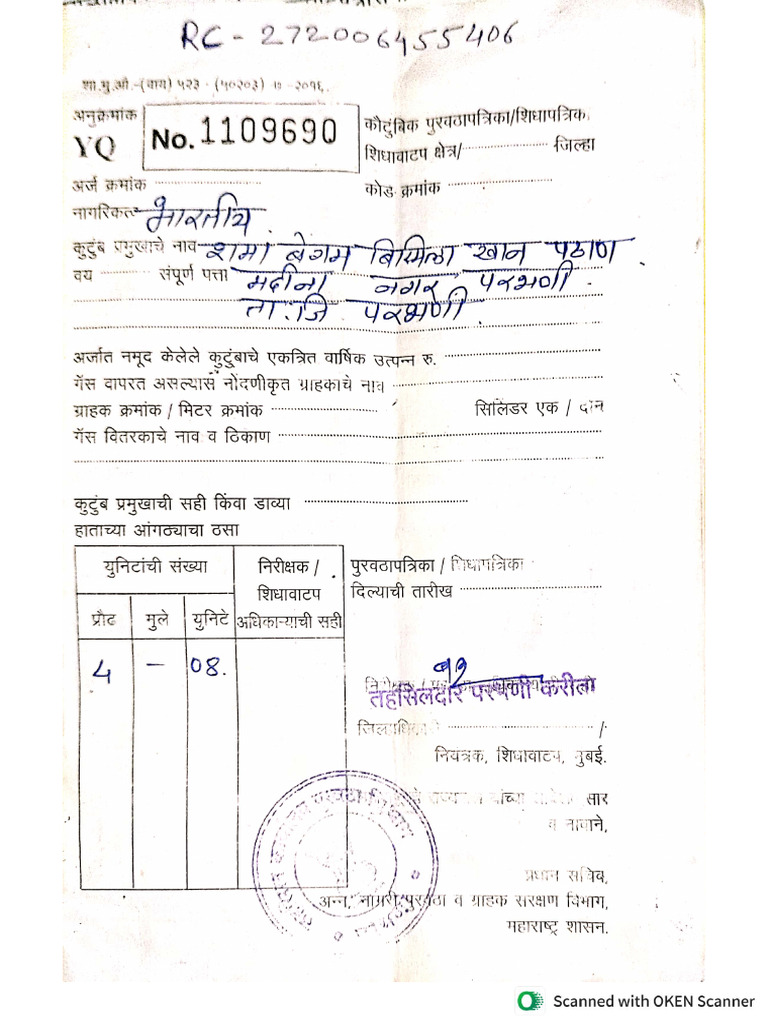 RC - 272006455406
शा.मु.औ.-(वाय) ५२३ - (५०२०३) -७ -२०१६.
अनुक्रमांक
YQ
No. 1109690
कौटुंबिक पुरवठापत्रिका/शिधापत्रिका
शिधावाटप क्षेत्र/ जिल्हा
अर्ज क्रमांक
कोड क्रमांक
नागरिकत्व भारतीय
कुटुंब प्रमुखाचे नाव शमा बेगम बिस्मिला खान पठाण
वय संपूर्ण पत्ता मदीना नगर परभणी.
ता.जि परभणी.
अर्जात नमूद केलेले कुटुंबाचे एकत्रित वार्षिक उत्पन्न रु.
गॅस वापरत असल्यास नोंदणीकृत ग्राहकाचे नाव
ग्राहक क्रमांक / मिटर क्रमांक सिलिंडर एक / दोन
गॅस वितरकाचे नाव व ठिकाण
कुटुंब प्रमुखाची सही किंवा डाव्या
हाताच्या आंगठ्याचा ठसा
युनिटांची संख्या
निरीक्षक /
शिधावाटप
अधिकाऱ्याची सही
प्रौढ मुले युनिटे
4 – 08.
पुरवठापत्रिका / शिधापत्रिका
दिल्याची तारीख
तहसिलदार परभणी करीता
जिल्हाधिकारी /
नियंत्रक, शिधावाटप, मुंबई.
सार
व नावाने,
प्रधान सचिव,
अन्न, नागरी पुरवठा व ग्राहक संरक्षण विभाग,
महाराष्ट्र शासन.
Scanned with OKEN Scanner